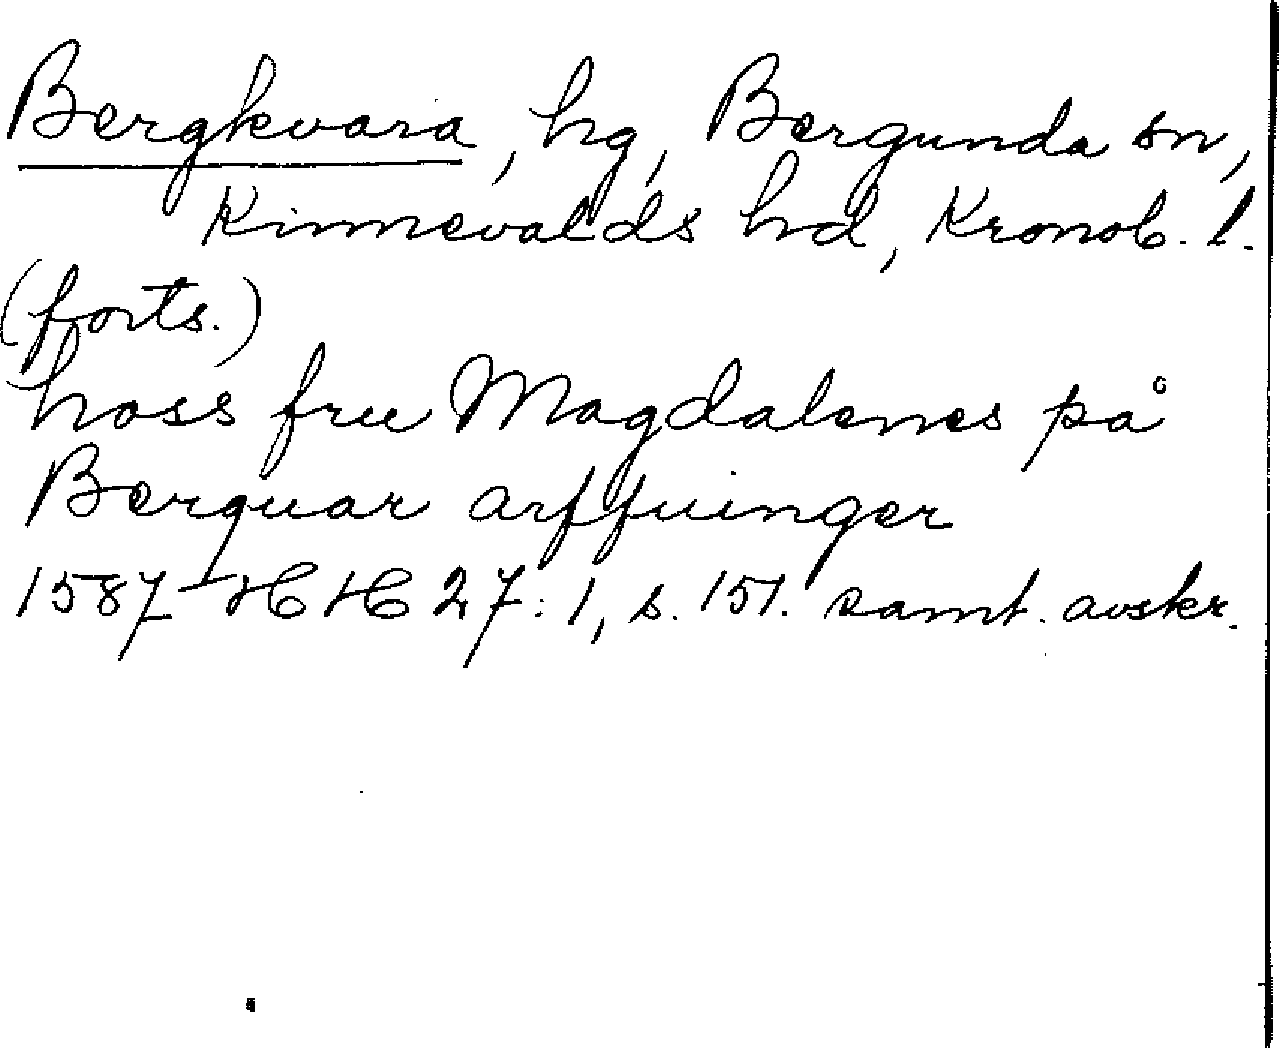 Bergkvara, hg, Bergunda sn,
Kinnevalds hd, Kronob. l.
(forts.)
hoss frue Magdalenes på
Berquar arffuinger
1587 HH 27: 1, s. 151. samt. avskr.